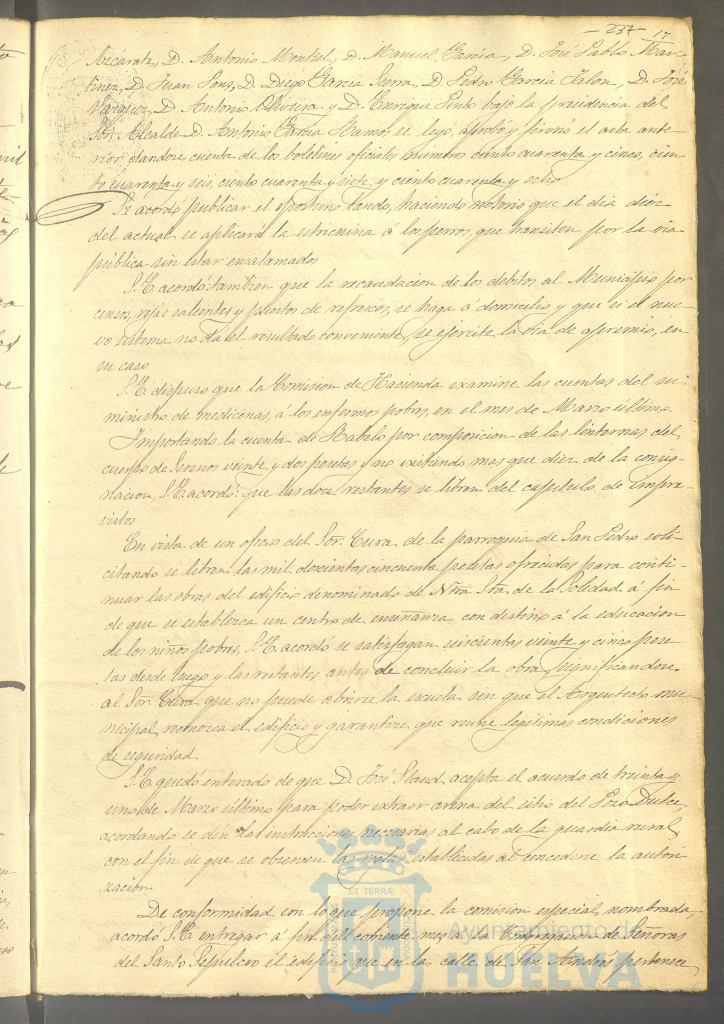 — 237 — 17
Azcárate, D. Antonio Montiel, D. Manuel Garcia, D. José Pablo Mar-
tinez, D. Juan Pons, D. Diego Garcia Sierra, D. Pedro Garcia Jalon, D. José
Marquez, D. Antonio Oliveira y D. Enrique Pinto bajo la presidencia del
Sor. Alcalde D. Antonio Garcia Ramos, se leyo, aprobó y firmó el acta ante-
rior, dandose cuenta de los boletines oficiales numeros ciento cuarenta y cinco, cien-
to cuarenta y seis, ciento cuarenta y siete y ciento cuarenta y ocho
Se acordó publicar el oportuno bando, haciendo notorio que el dia diez
del actual se aplicará la estricnina á los perros, que transiten por la via
pública sin estar embozalados
S. E. acordó tambien que la recaudacion de los debitos al Municipio por
censos, rejas salientes y puestos de refrescos, se haga á domicilio y que si el nue-
vo sistema no dá el resultado conveniente, se ejercite la via de apremio, en
su caso
S. E. dispuso que la Comision de Hacienda examine las cuentas del su-
ministro de medicinas, á los enfermos pobres, en el mes de Marzo último.
Importando la cuenta de Rabelo por composicion de las linternas del
cuerpo de Serenos veinte y dos pesetas y no existiendo mas que diez de la consig-
nacion, S. E. acordó: que las doce restantes se libren del capitulo de impre-
vistos
En vista de un oficio del Sor. Cura de la parroquia de San Pedro soli-
citando se libren las mil doscientas cincuenta pesetas ofrecidas para conti-
nuar las obras del edificio denominado de Ntra Sra. de la Soledad á fin
de que se establezca un centro de enseñanza con destino á la educacion
de los niños pobres, S. E. acordó se satisfagan seiscientas veinte y cinco pese-
tas desde luego y las restantes antes de concluir la obra, significandose
al Sor. Cura que no puede abrirse la escuela sin que el Arquitecto mu-
nicipal reconozca el edificio y garantize, que reune legítimas condiciones
de seguridad
S. E. quedó enterado de que D. José Staud acepta el acuerdo de treinta y
uno de Marzo último para poder extraer arena del sitio del Pozo Dulce,
acordando se den las instrucciones necesarias, al cabo de la guardia rural,
con el fin de que se observen las reglas establecidas al concederse la autori-
zacion
De conformidad con lo que propone la comision especial nombrada,
acordó S. E. entregar á fin del corriente mes á la Congregacion de Señoras
del Santo Sepulcro el edificio que en la calle de San Andrés pertenece
ET TERRÆ
Ayuntamiento de
HUELVA